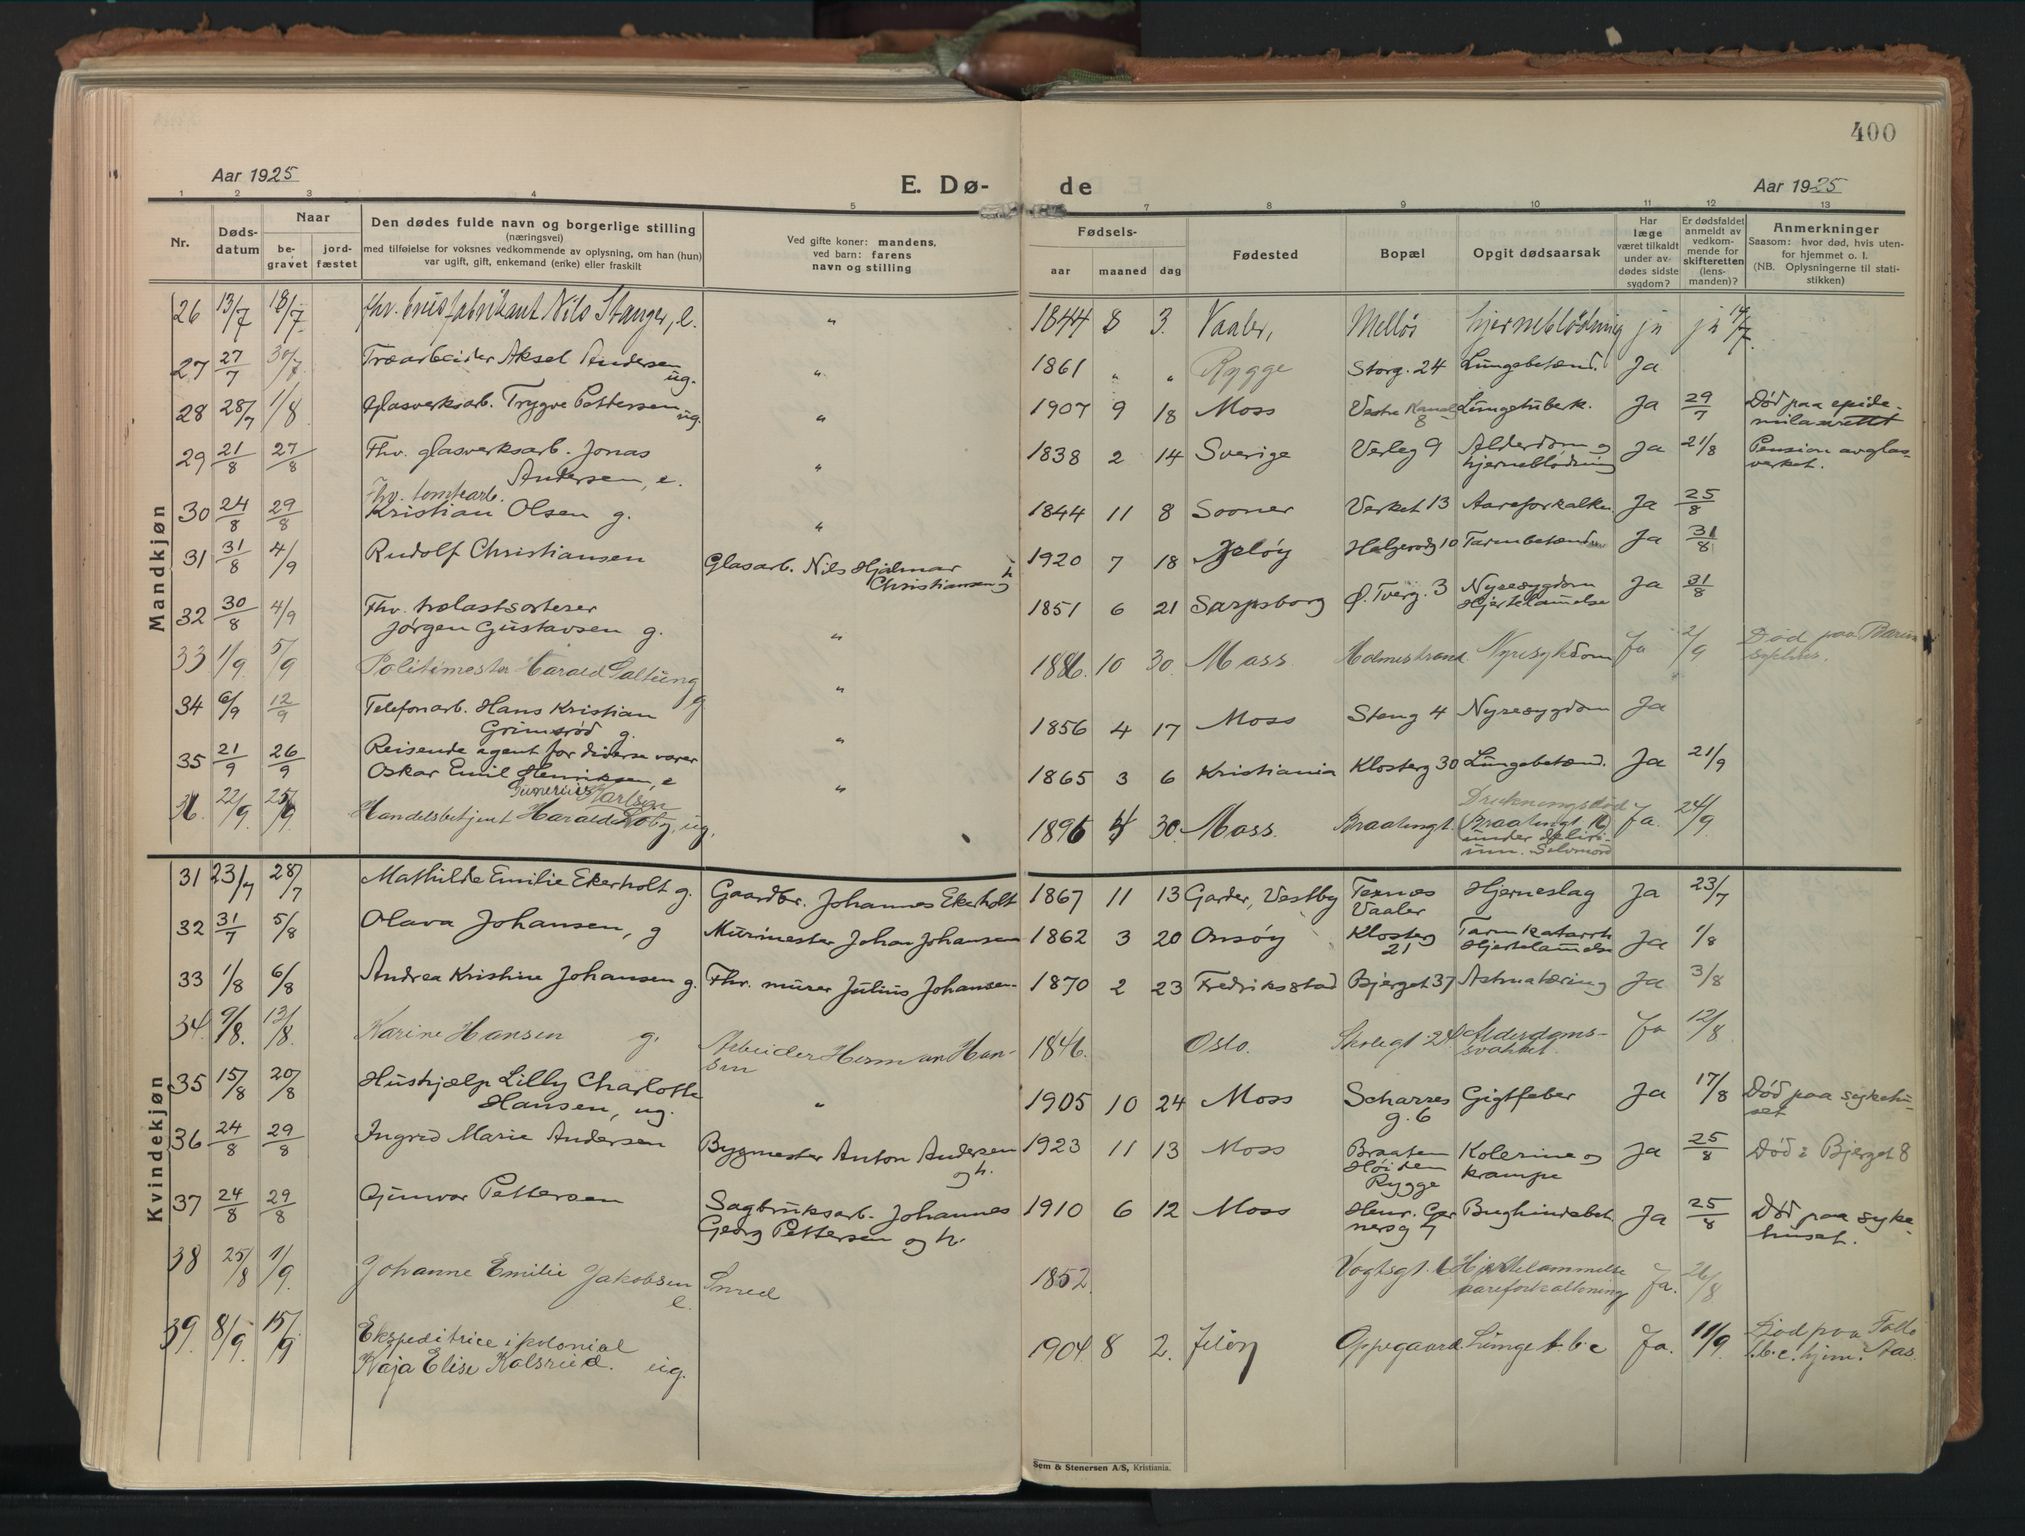 400
Aar 1925
E. Dø-
de
Aar 1925
1 2 3 4 5 7 8 9 10 11 12 13
Nr.
Døds-
datum
Naar
be-
gravet
jord-
fæstet
Den dødes fulde navn og borgerlige stilling
(næringsvei)
med tilføielse for voksnes vedkommende av oplysning, om han (hun)
var ugift, gift, enkemand (enke) eller fraskilt
Ved gifte koner: mandens,
ved barn: farens
navn og stilling
Fødsels-
aar maaned dag
Fødested
Bopæl
Opgit dødsaarsak
Har
læge
været tilkaldt
under av-
dødes sidste
sygdom?
Er dødsfaldet
anmeldt av
vedkom-
mende for
skifteretten
(lens-
manden)?
Anmerkninger
Saasom: hvor død, hvis uten-
for hjemmet o. l.
(NB. Oplysningerne til stati-
stikken)
Mandkjøn
26 13/7 18/7 fhv. brusfabrikant Nils Stanger, e. " 1844 8 3. Vaaler, Melløs hjerneblødning ja ja 14/7.
27 27/7 30/7 Træarbeider Aksel Andersen " 1861 " " Rygge Storg. 24 Lungebetænd. Ja
ug.
28 28/7 1/8 Glasverksarb. Trygve Pettersen ug. " 1907 9 18 Moss Vestre Kanalg 8 Lungetuberk. Ja 29/7 Død paa epide-
milasarettet
29 21/8 27/8 Fhv. glasverksarb. Jonas " 1838 2 14 Sverige Verleg 9 Alderdom og Ja 21/8 Pension av glas-
Andersen, e. hjerneblødning verket.
fhv. tomtearb.
30 24/8 29/8 Kristian Olsen g. " 1844 11 8 Sooner Verket 13 Aareforkalkn. Ja 25/8
31 31/8 4/9 Rudolf Christiansen Glasarb. Nils Hjalmar 1920 7 18 Jeløy Helgerødg 10 Tarmbetænd Ja 31/8
Christiansen og h.
32 30/8 4/9 Fhv. trælastsorterer " 1851 6 21 Sarpsborg Ø. Tverg. 3 Nyresygdom Ja 31/8
Jørgen Gustavsen g. Hjertelammelse
33 1/9 5/9 Politimester Harald Galtung g " 1886. 10 30. Moss. Holmestrand Nyresykdom Ja 2/9 Død paa Bærum
sykehus.
34 6/9 12/9 Telefonarb. Hans Kristian " 1856 4 17 Moss Steng 4 Nyresygdom Ja
Grimsrød g.
35 21/9 26/9 Reisende agent for diverse varer " 1865 3 6 Kristiania Klosterg 30 Lungebetænd. Ja 21/9
Oskar Emil Henriksen, e
36. 22/9. 25/9 Handelsbetjent Harald Gunerius Karlsen Roby, ug. 1896 4 30. Moss. Braatengt. Drukningsdød Ja. 24/9.
(Braatengt. 16)
under deliri-
um. Selvmord
Kvindekjøn
31 23/7 28/7 Mathilde Emilie Ekerholt g. Gaardbr. Johannes Ekerholt 1867 11 13 Garder, Vestby Texnæs Hjerneslag Ja 23/7
Vaaler
32 31/7 5/8 Olava Johansen, g Murmester Johan Johansen 1862 3 20 Onsøy Klosterg 21 Tarmkatarrh Ja 1/8
Hjertelammelse
33 1/8 6/8 Andrea Kristine Johansen g. Fhv. murer Julius Johansen 1870 2 23 Fredriksstad Bjerget 37 Astmatæring Ja 3/8
34. 9/8. 13/8. Karine Hansen g. Arbeider Herman Han- 1846. Oslo. Skolegt 24 Alderdoms- Ja 12/8.
sen svakhet.
35 15/8 20/8 Hushjælp Lilly Charlotte " 1905 10 24 Moss Scharres Gigtfeber Ja 17/8 Død paa sykehu-
Hansen, ug. g. 6 set
36 24/8 29/8 Ingrid Marie Andersen Bygmester Anton Andersen 1923 11 13 Moss Braaten Kolerine og Ja 25/8 Død i Bjerget 8
og h. Høiden krampe
Rygge
37 24/8 29/8 Gunvor Pettersen Sagbruksarb. Johannes 1910 6 12 Moss Henr. Ger Bughindebet. Ja 25/8 Død paa syke-
Georg Pettersen og h. nersg 7 huset.
38 25/8 1/9. Johanne Emilie Jakobsen Smed 1852. Vogtsgt. Hjertelammelse Ja. 26/8
e. aareforkalkning
39. 8/9. 15/9 Ekspeditrice i kolonial 1904. 8 2. Jeløy Oppegaard Lunge t.b.c Ja. 11/9. Død paa Follo
Kaja Elise Kolsrud. ug. t.b.c. hjem. Aas.
Sem & Stenersen A/S, Kristiania.